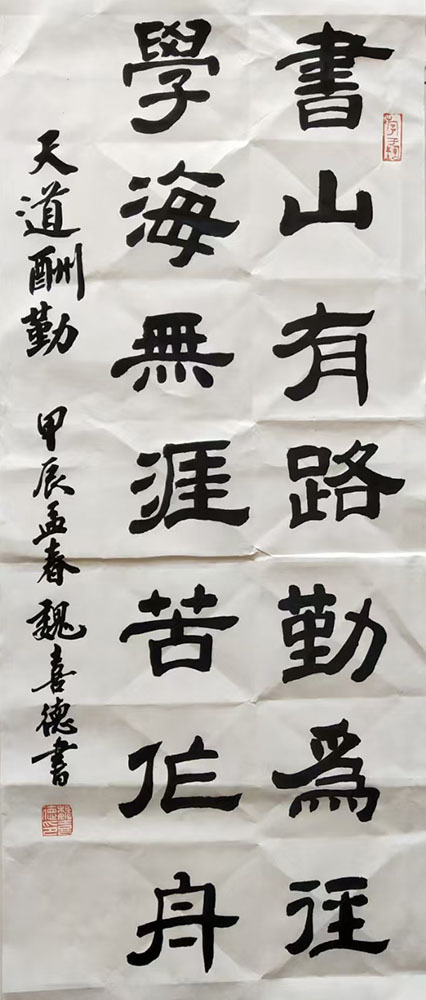 書山有路勤為徑
學海無涯苦作舟
天道酬勤 甲辰孟春魏喜德書